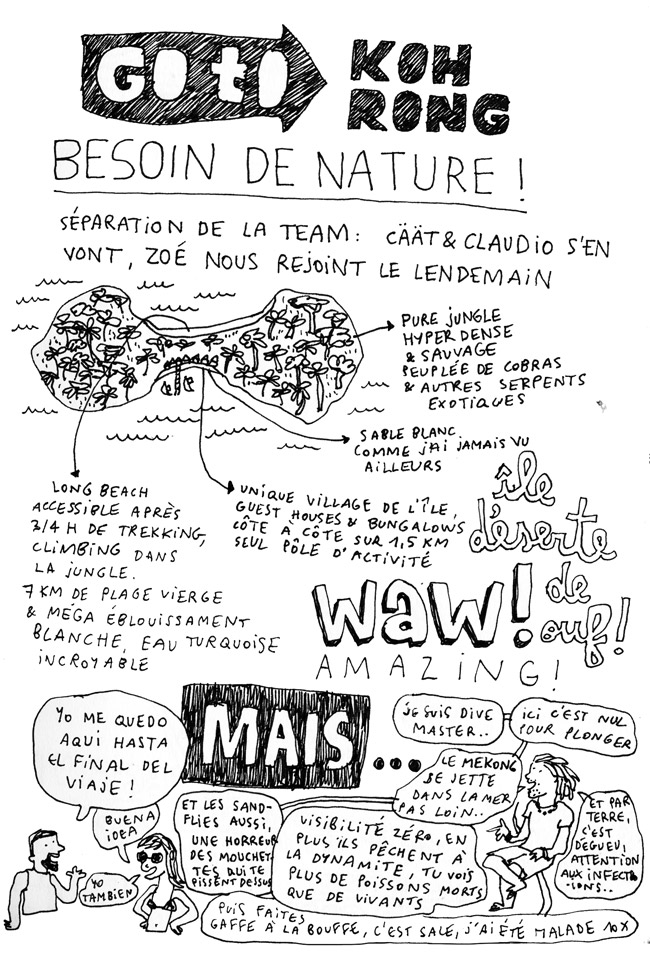 GO tO
KOH
RONG
BESOIN DE NATURE !
SÉPARATION DE LA TEAM : CÄÄT & CLAUDIO S'EN
VONT, ZOÉ NOUS REJOINT LE LENDEMAIN
PURE JUNGLE
HYPER DENSE
& SAUVAGE
PEUPLÉE DE COBRAS
& AUTRES SERPENTS
EXOTIQUES
SABLE BLANC
COMME J'AI JAMAIS VU
AILLEURS
LONG BEACH
ACCESSIBLE APRÈS
3/4 H DE TREKKING,
CLIMBING DANS
LA JUNGLE.
7 KM DE PLAGE VIERGE
& MÉGA ÉBLOUISSAMENT
BLANCHE, EAU TURQUOISE
INCROYABLE
UNIQUE VILLAGE DE L'ÎLE,
GUEST HOUSES & BUNGALOWS
CÔTE À CÔTE SUR 1,5 KM
SEUL PÔLE D'ACTIVITÉ
île
déserte
de
ouf !
waw !
AMAZING !
MAIS ...
YO ME QUEDO
AQUI HASTA
EL FINAL DEL
VIAJE !
BUENA
IDEA
YO
TAMBIEN
JE SUIS DIVE
MASTER..
ICI C'EST NUL
POUR PLONGER
LE MEKONG
SE JETTE
DANS LA MER
PAS LOIN..
VISIBILITÉ ZÉRO, EN
PLUS ILS PÊCHENT À
LA DYNAMITE, TU VOIS
PLUS DE POISSONS MORTS
QUE DE VIVANTS
ET LES SAND-
FLIES AUSSI,
UNE HORREUR
DES MOUCHET-
TES QUI TE
PISSENT DESSUS
ET PAR
TERRE,
C'EST
DÉGUEU,
ATTENTION
AUX INFECTI
-ONS..
PUIS FAITES
GAFFE À LA BOUFFE, C'EST SALE, J'AI ÉTÉ MALADE 10X